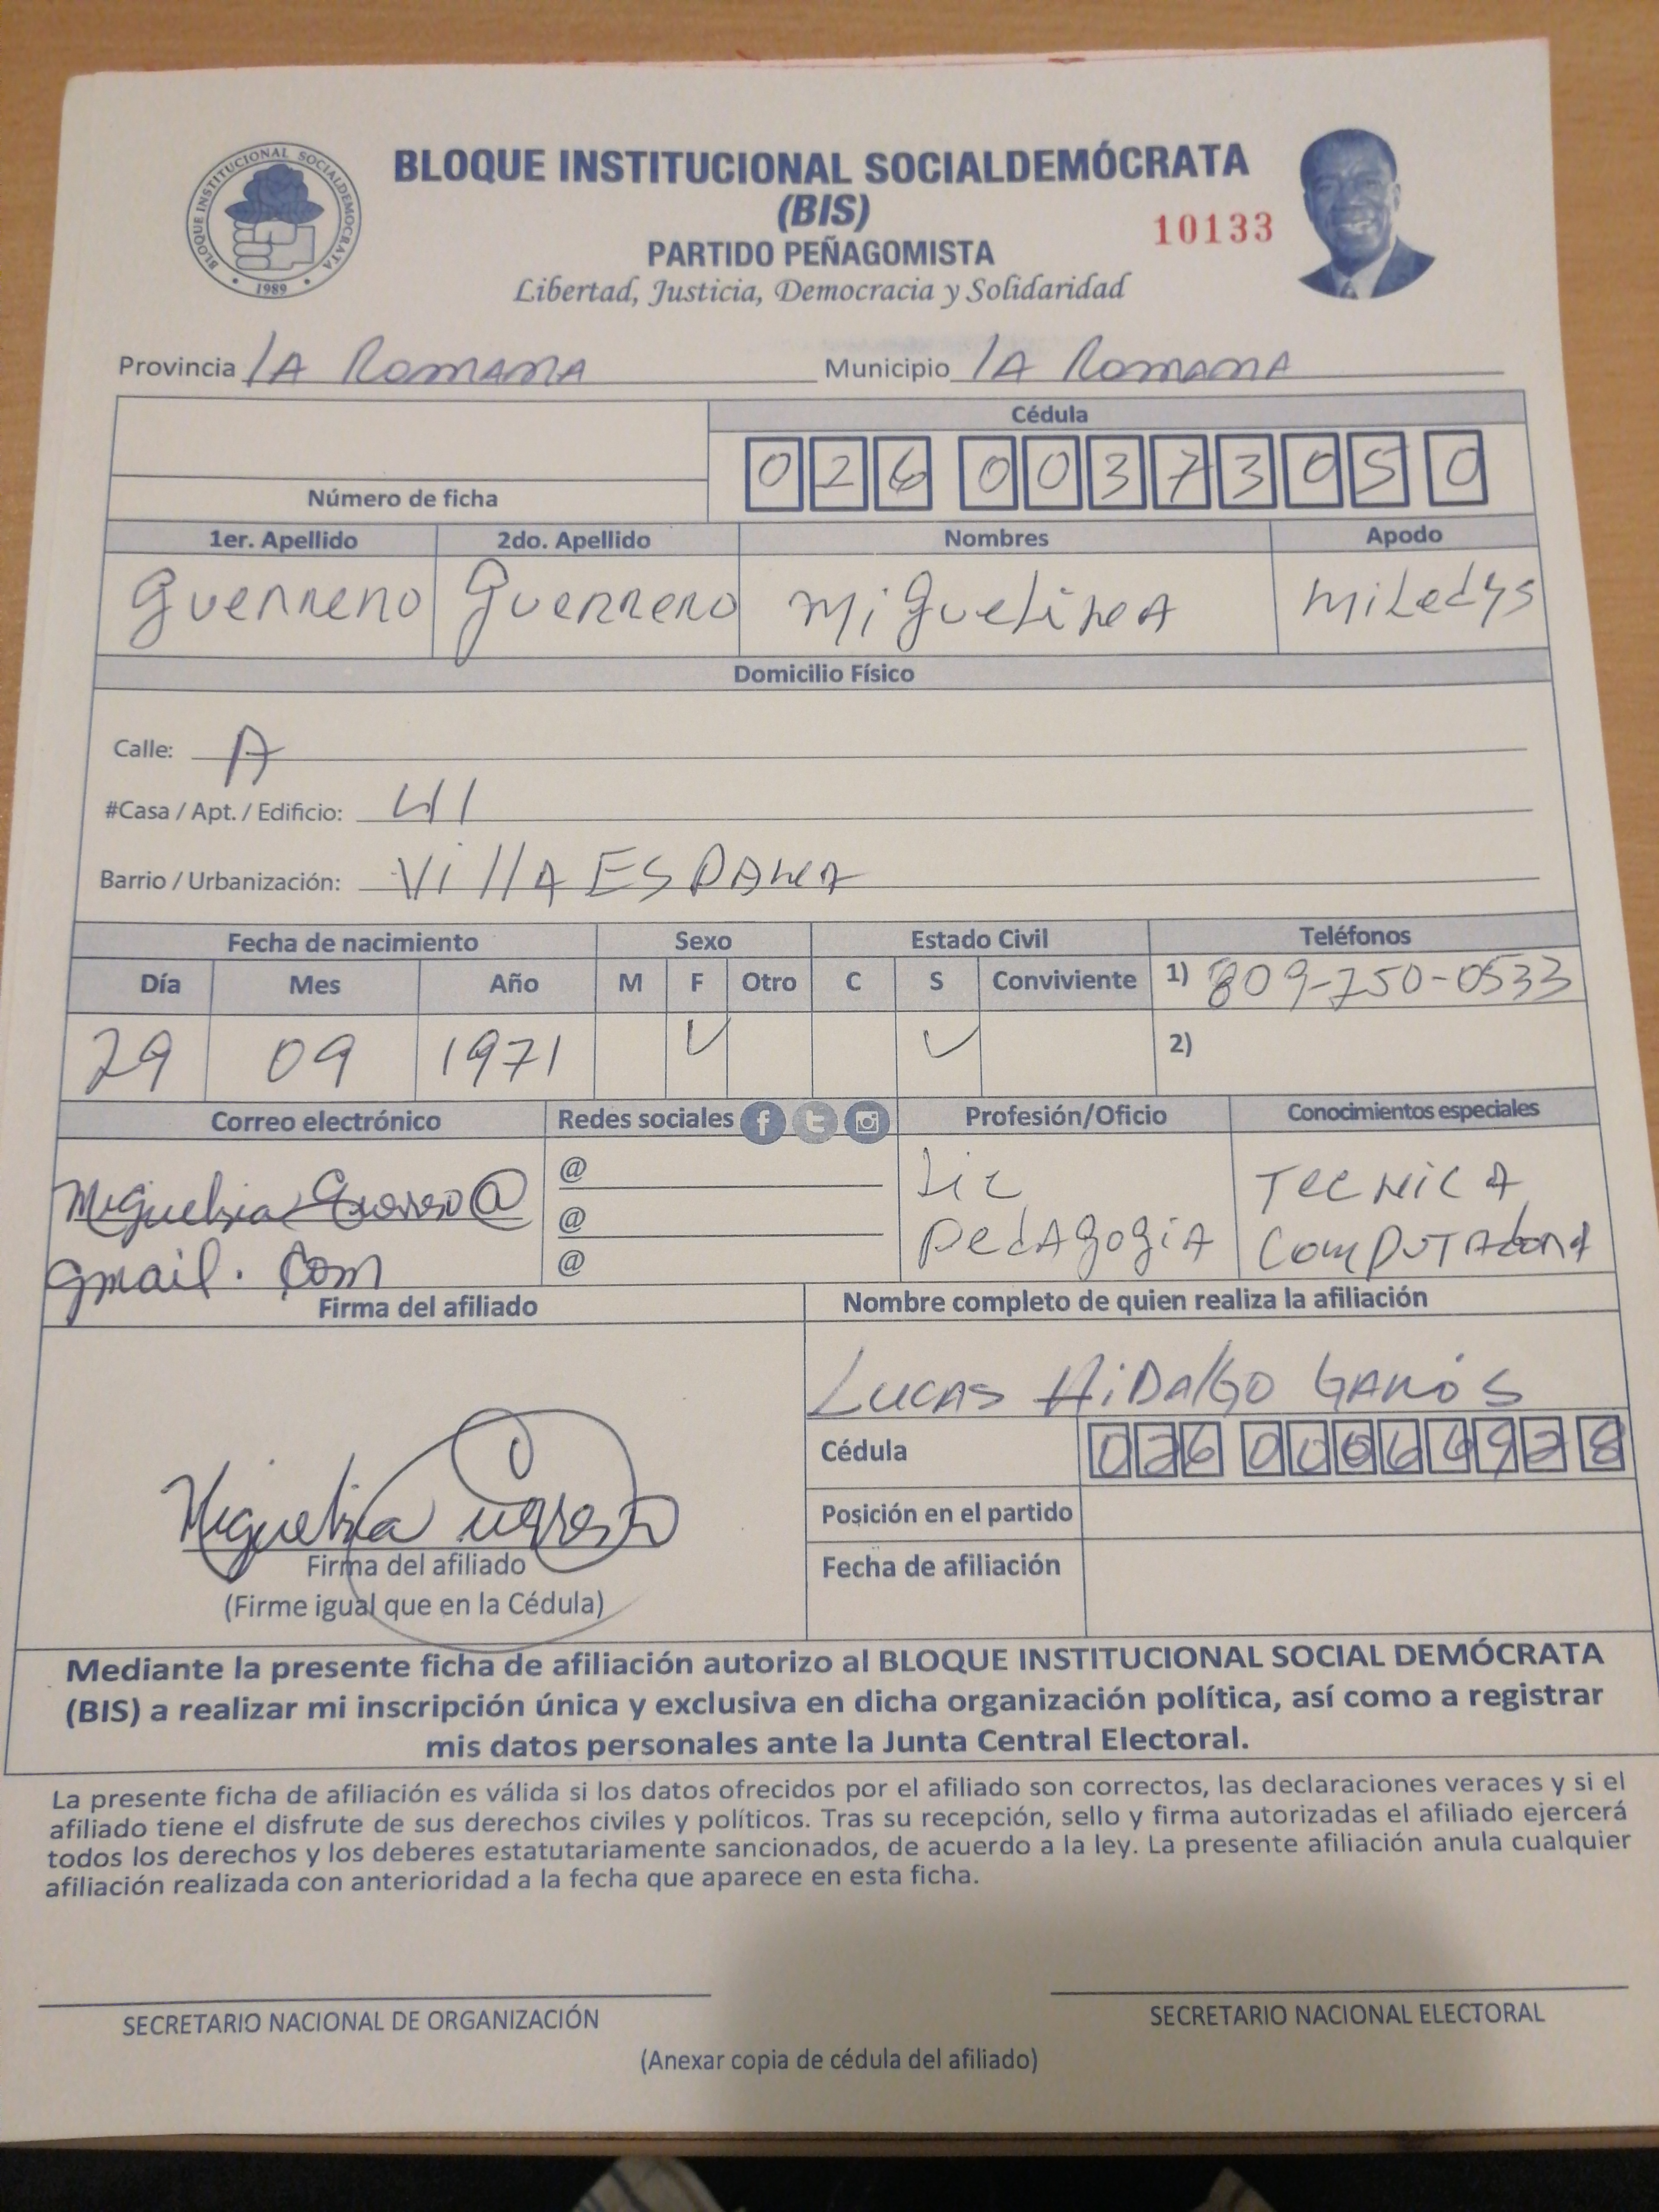 BLOQUE INSTITUCIONAL SOCIALDEMÓCRATA
(BIS)
PARTIDO PEÑAGOMISTA
Libertad, Justicia, Democracia y Solidaridad
10133
BLOQUE INSTITUCIONAL SOCIALDEMOCRATA
1989
Provincia LA ROMANA Municipio LA ROMANA
Cédula
026 0037305 0
Número de ficha
1er. Apellido 2do. Apellido Nombres Apodo
Guerrero Guerrero MiguelineA MiLedys
Domicilio Físico
Calle: A
#Casa / Apt. / Edificio: 41
Barrio / Urbanización: Villa ESPANA
Fecha de nacimiento Sexo Estado Civil Teléfonos
Día Mes Año M F Otro C S Conviviente 1) 809-750-0533
29 09 1971 ✓ ✓ 2)
Correo electrónico Redes sociales Profesión/Oficio Conocimientos especiales
@ Lic TECNICA
@ PedAgogiA
gmail.com @
Firma del afiliado Nombre completo de quien realiza la afiliación
LUCAS HiDALGO
Cédula
Posición en el partido
Firma del afiliado
Fecha de afiliación
(Firme igual que en la Cédula)
Mediante la presente ficha de afiliación autorizo al BLOQUE INSTITUCIONAL SOCIAL DEMÓCRATA
(BIS) a realizar mi inscripción única y exclusiva en dicha organización política, así como a registrar
mis datos personales ante la Junta Central Electoral.
La presente ficha de afiliación es válida si los datos ofrecidos por el afiliado son correctos, las declaraciones veraces y si el
afiliado tiene el disfrute de sus derechos civiles y políticos. Tras su recepción, sello y firma autorizadas el afiliado ejercerá
todos los derechos y los deberes estatutariamente sancionados, de acuerdo a la ley. La presente afiliación anula cualquier
afiliación realizada con anterioridad a la fecha que aparece en esta ficha.
SECRETARIO NACIONAL DE ORGANIZACIÓN SECRETARIO NACIONAL ELECTORAL
(Anexar copia de cédula del afiliado)